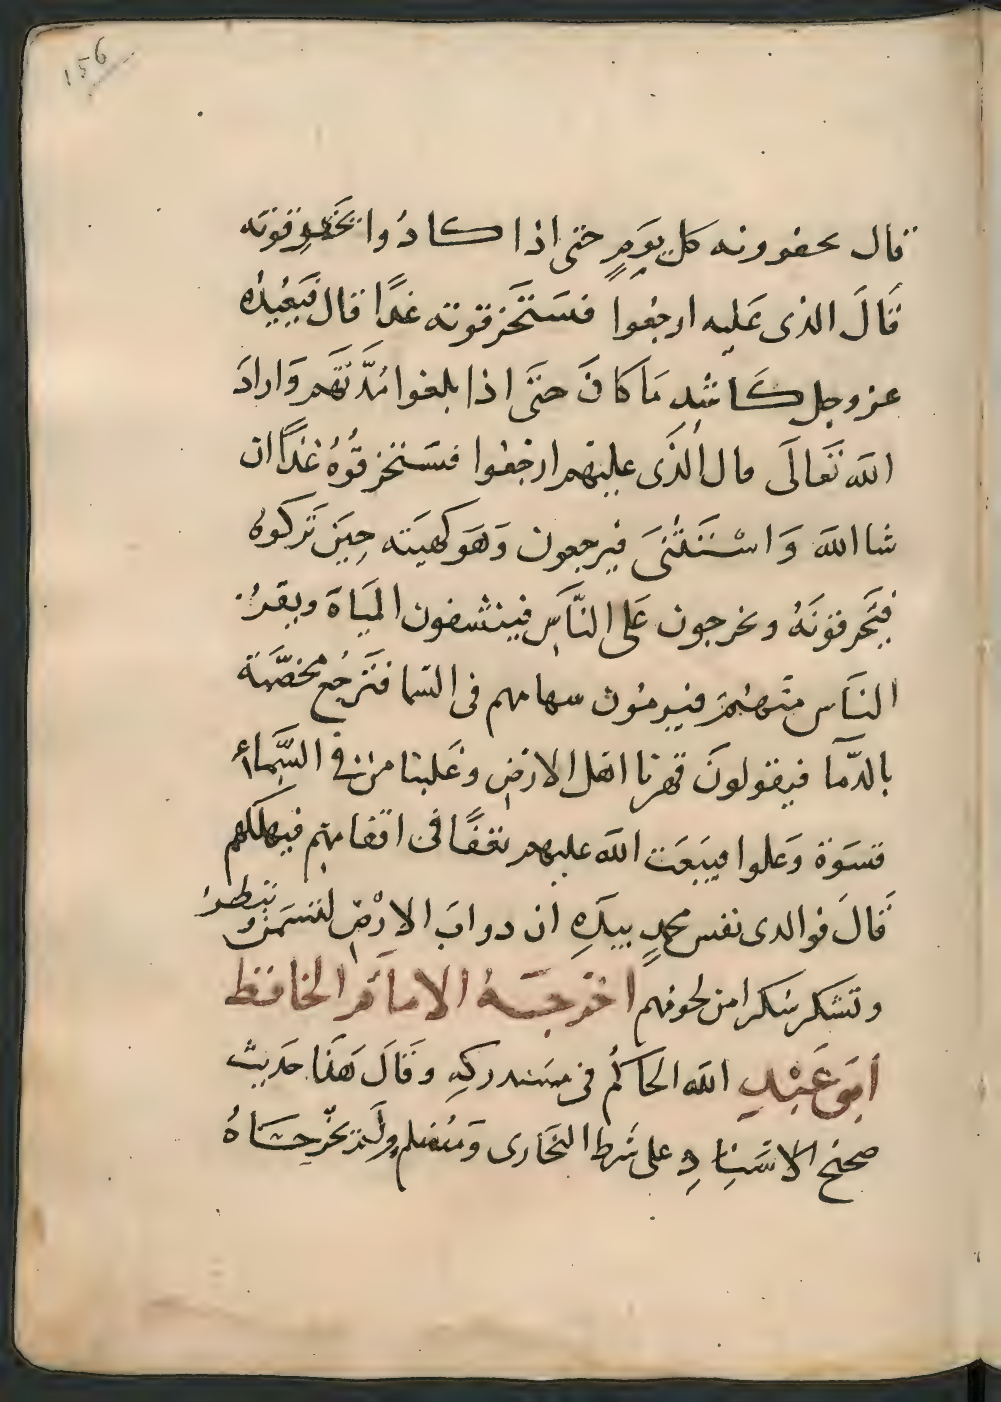 156
قال يحفرونه كل يومٍ حتى اذا كادُوا يخرقونه
قَالَ الذى عَليه ارجعوا فستَخرقونه غدًا قال فيَعيدُه
عز وجل كَاشدِ مَا كانَ حتىَّ اذا بلغوا مدَّتَهَم وَارادَ
الله تَعَالَى قال الذَى عليهم ارجعُوا فستخرقُوهُ غدًا ان
شا اللهَ وَاسْتَثنىَ فيرجعون وَهَو كهيَته حِيَن تَركوه
فيَخرقونَهُ ويخرجون عَلى النّاسِ فينشفون الميَاهَ ويفرُ
الناَس منَهُمَ فيرمُون سهامهم فى السّما فتَرجُع مخضَّبَة
بالدّمَا فيقولونَ قهرنا اهَل الارَضِ وغَلبنا من فى السَّماءِ
قسَوة وَعلوا فيبَعَث اللهَ عليهم نغفًا فى اقفائهم فيهلكهم
قَالَ فوالذى نفس محمدٍ بيدَهِ ان دوابَ الارْضِ لتسمَن وتبطر
وتشكر شكرا من لحومهم اخرجَهُ الامَام الحَافظ
ابَو عَبْدِ الله الحَاكم فى مستدركهِ وقَالَ هَذَا حَديث
صحيح الاسَنادِ على شَرط البَخارى وَمُسلم ولَم يخّرجَاهُ